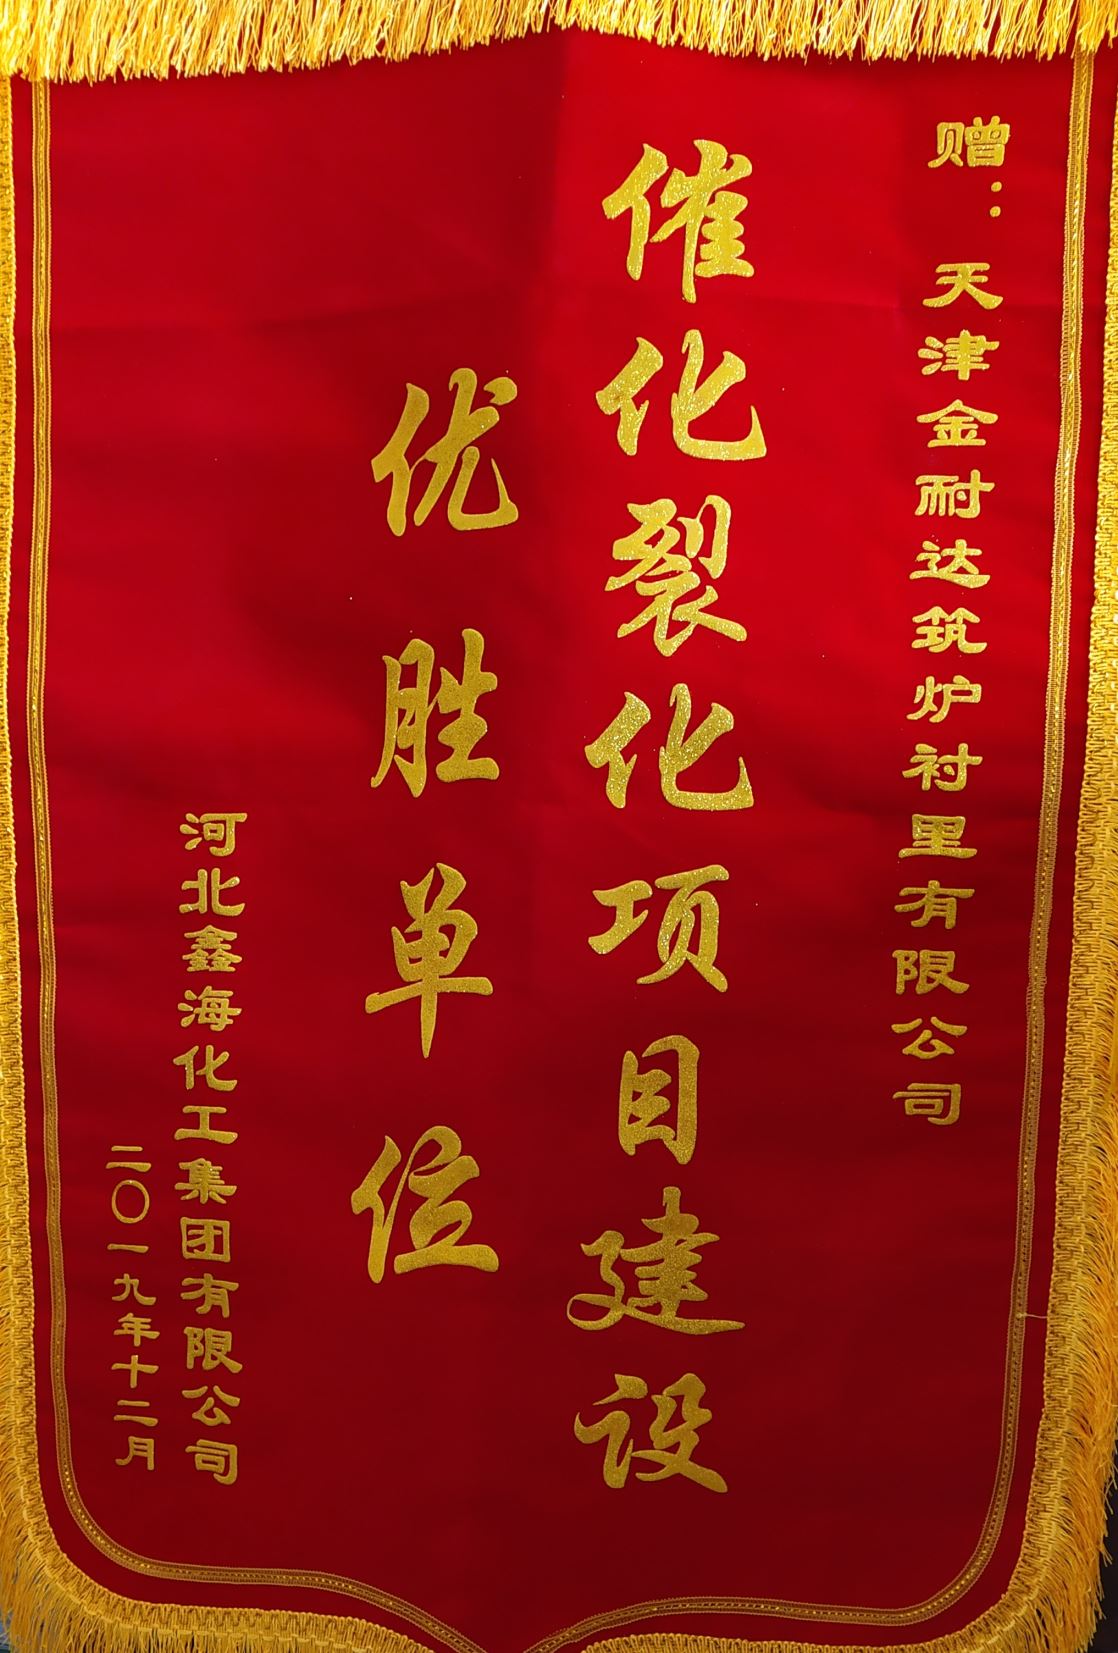 赠：天津金耐达筑炉衬里有限公司
催化裂化项目建设
优胜单位
河北鑫海化工集团有限公司
二〇一九年十二月